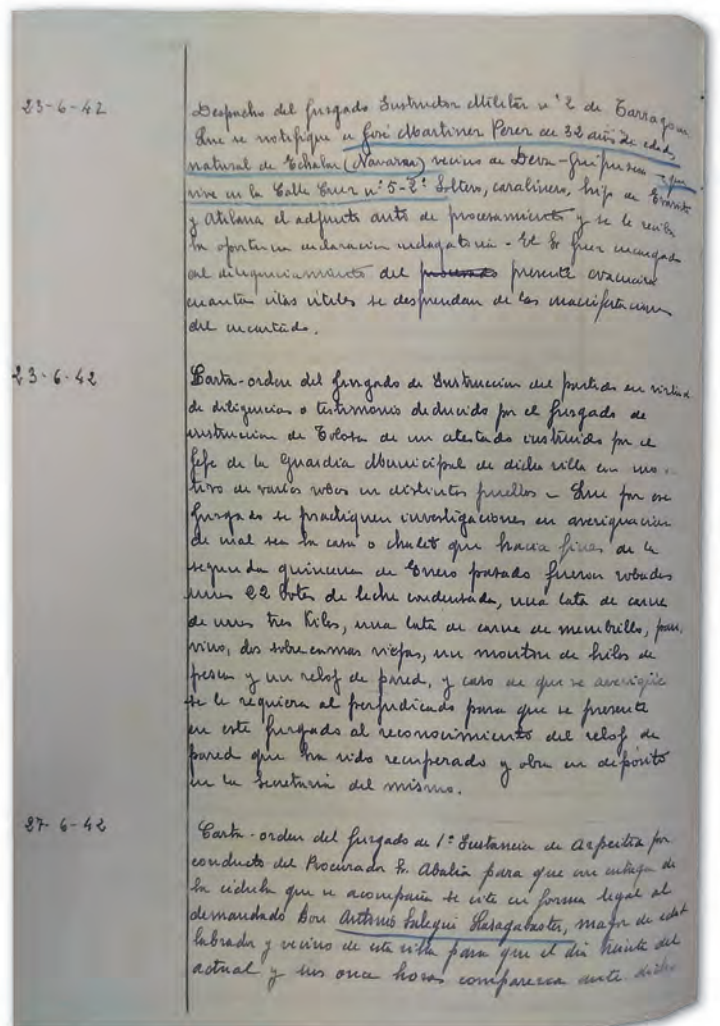 23-6-42
Despacho del Juzgado Instructor Militar nº 2 de Tarragona
Que se notifique a José Martinez Perez de 32 años de edad
natural de Echalar (Navarra) vecino de Deva-Guipuzcoa y que
vive en la Calle Cruz nº 5-2º Soltero, carabinero, hijo de
y Atilana el adjunto auto de procesamiento y se le reciba
la oportuna declaracion indagatoria - El Sr Juez encargado
del diligenciamiento del presente evacuará
cuantas citas utiles se desprendan de las manifestaciones
del encartado.
23-6-42
Carta-orden del Juzgado de Instruccion del partido en virtud
de diligencias o testimonio deducido por el Juzgado de
instruccion de Tolosa de un atestado instruido por el
Jefe de la Guardia Municipal de dicha villa con mo-
tivo de varios robos en distintos pueblos - Que por ese
Juzgado se practiquen investigaciones en averiguacion
de cual sea la casa o chalet que hacia fines de la
segunda quincena de Enero pasado fueron robados
unos 22 botes de leche condensada, una lata de carne
de unos tres Kilos, una lata de carne de membrillo, pan,
vino, dos sobrecamas viejas, un monton de hilos de
pesca y un reloj de pared, y caso de que se averigüe
se le requiera al perjudicado para que se presente
en este Juzgado al reconocimiento del reloj de
pared que ha sido recuperado y obra en depósito
en la Secretaria del mismo.
27-6-42
Carta-orden del Juzgado de 1ª Instancia de Azpeitia por
conducto del Procurador Sr. Abalia para que con entrega de
la cédula que se acompaña se cite en forma legal al
demandado Don Antonio Salegui, mayor de edad
labrador y vecino de esta villa para que el dia treinta del
actual y sus once horas comparezca ante dicho